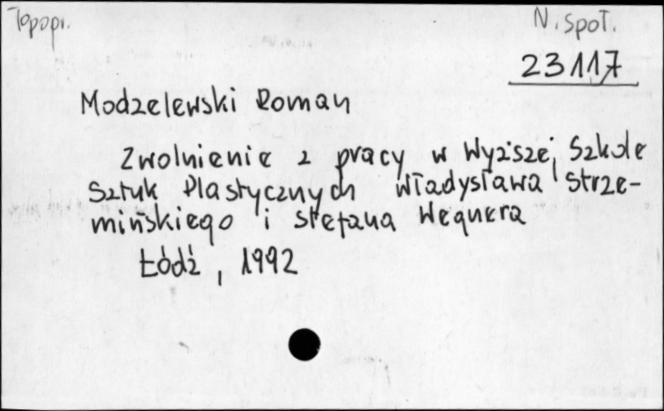 Topogr.
N. społ.
23117
Modzelewski Roman
Zwolnienie z pracy w Wyższej Szkole
Sztuk Plastycznych Władysława Strze-
mińskiego i Stefana Wegnera
Łódź, 1992